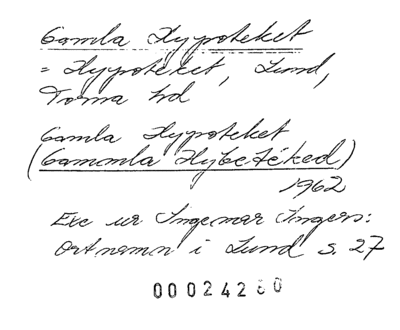 Gamla Hypoteket
= Hypoteket, Lund,
Torna hd
Gamla Hypoteket
(Gammla Hybetéked)
1962
Exc ur Ingemar Ingers:
Ortnamn i Lund s. 27